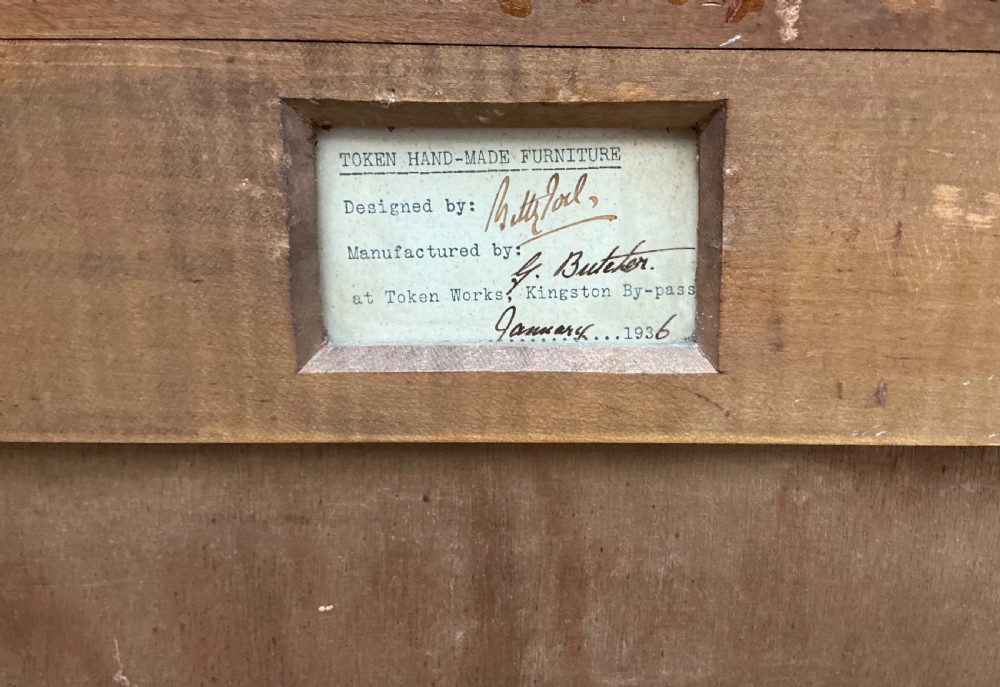 TOKEN HAND-MADE FURNITURE
Designed by: Betty Joel,
Manufactured by: G. Butcher.
at Token Works, Kingston By-pass
January....1936